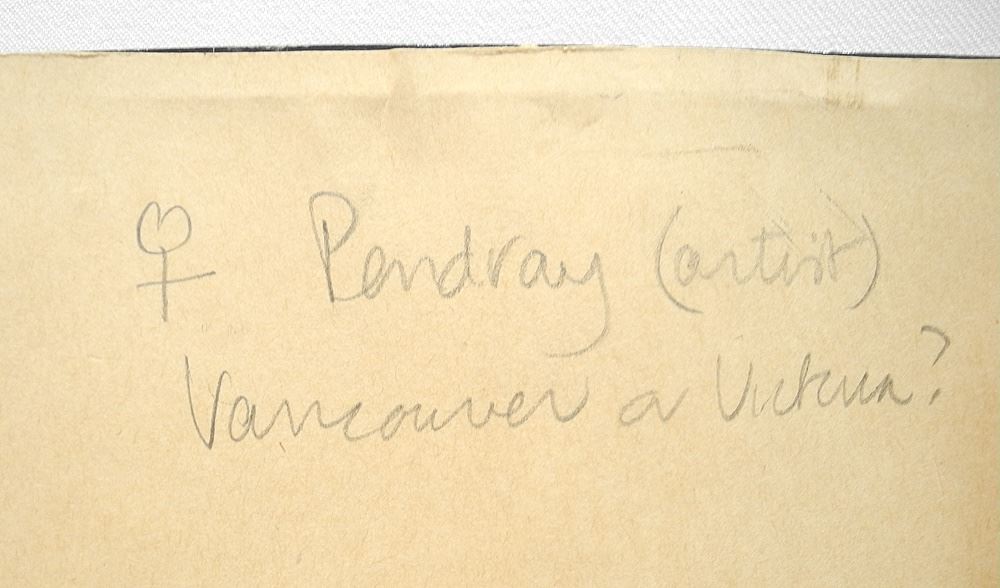 ♀ Pendray (artist)
Vancouver or Victoria?